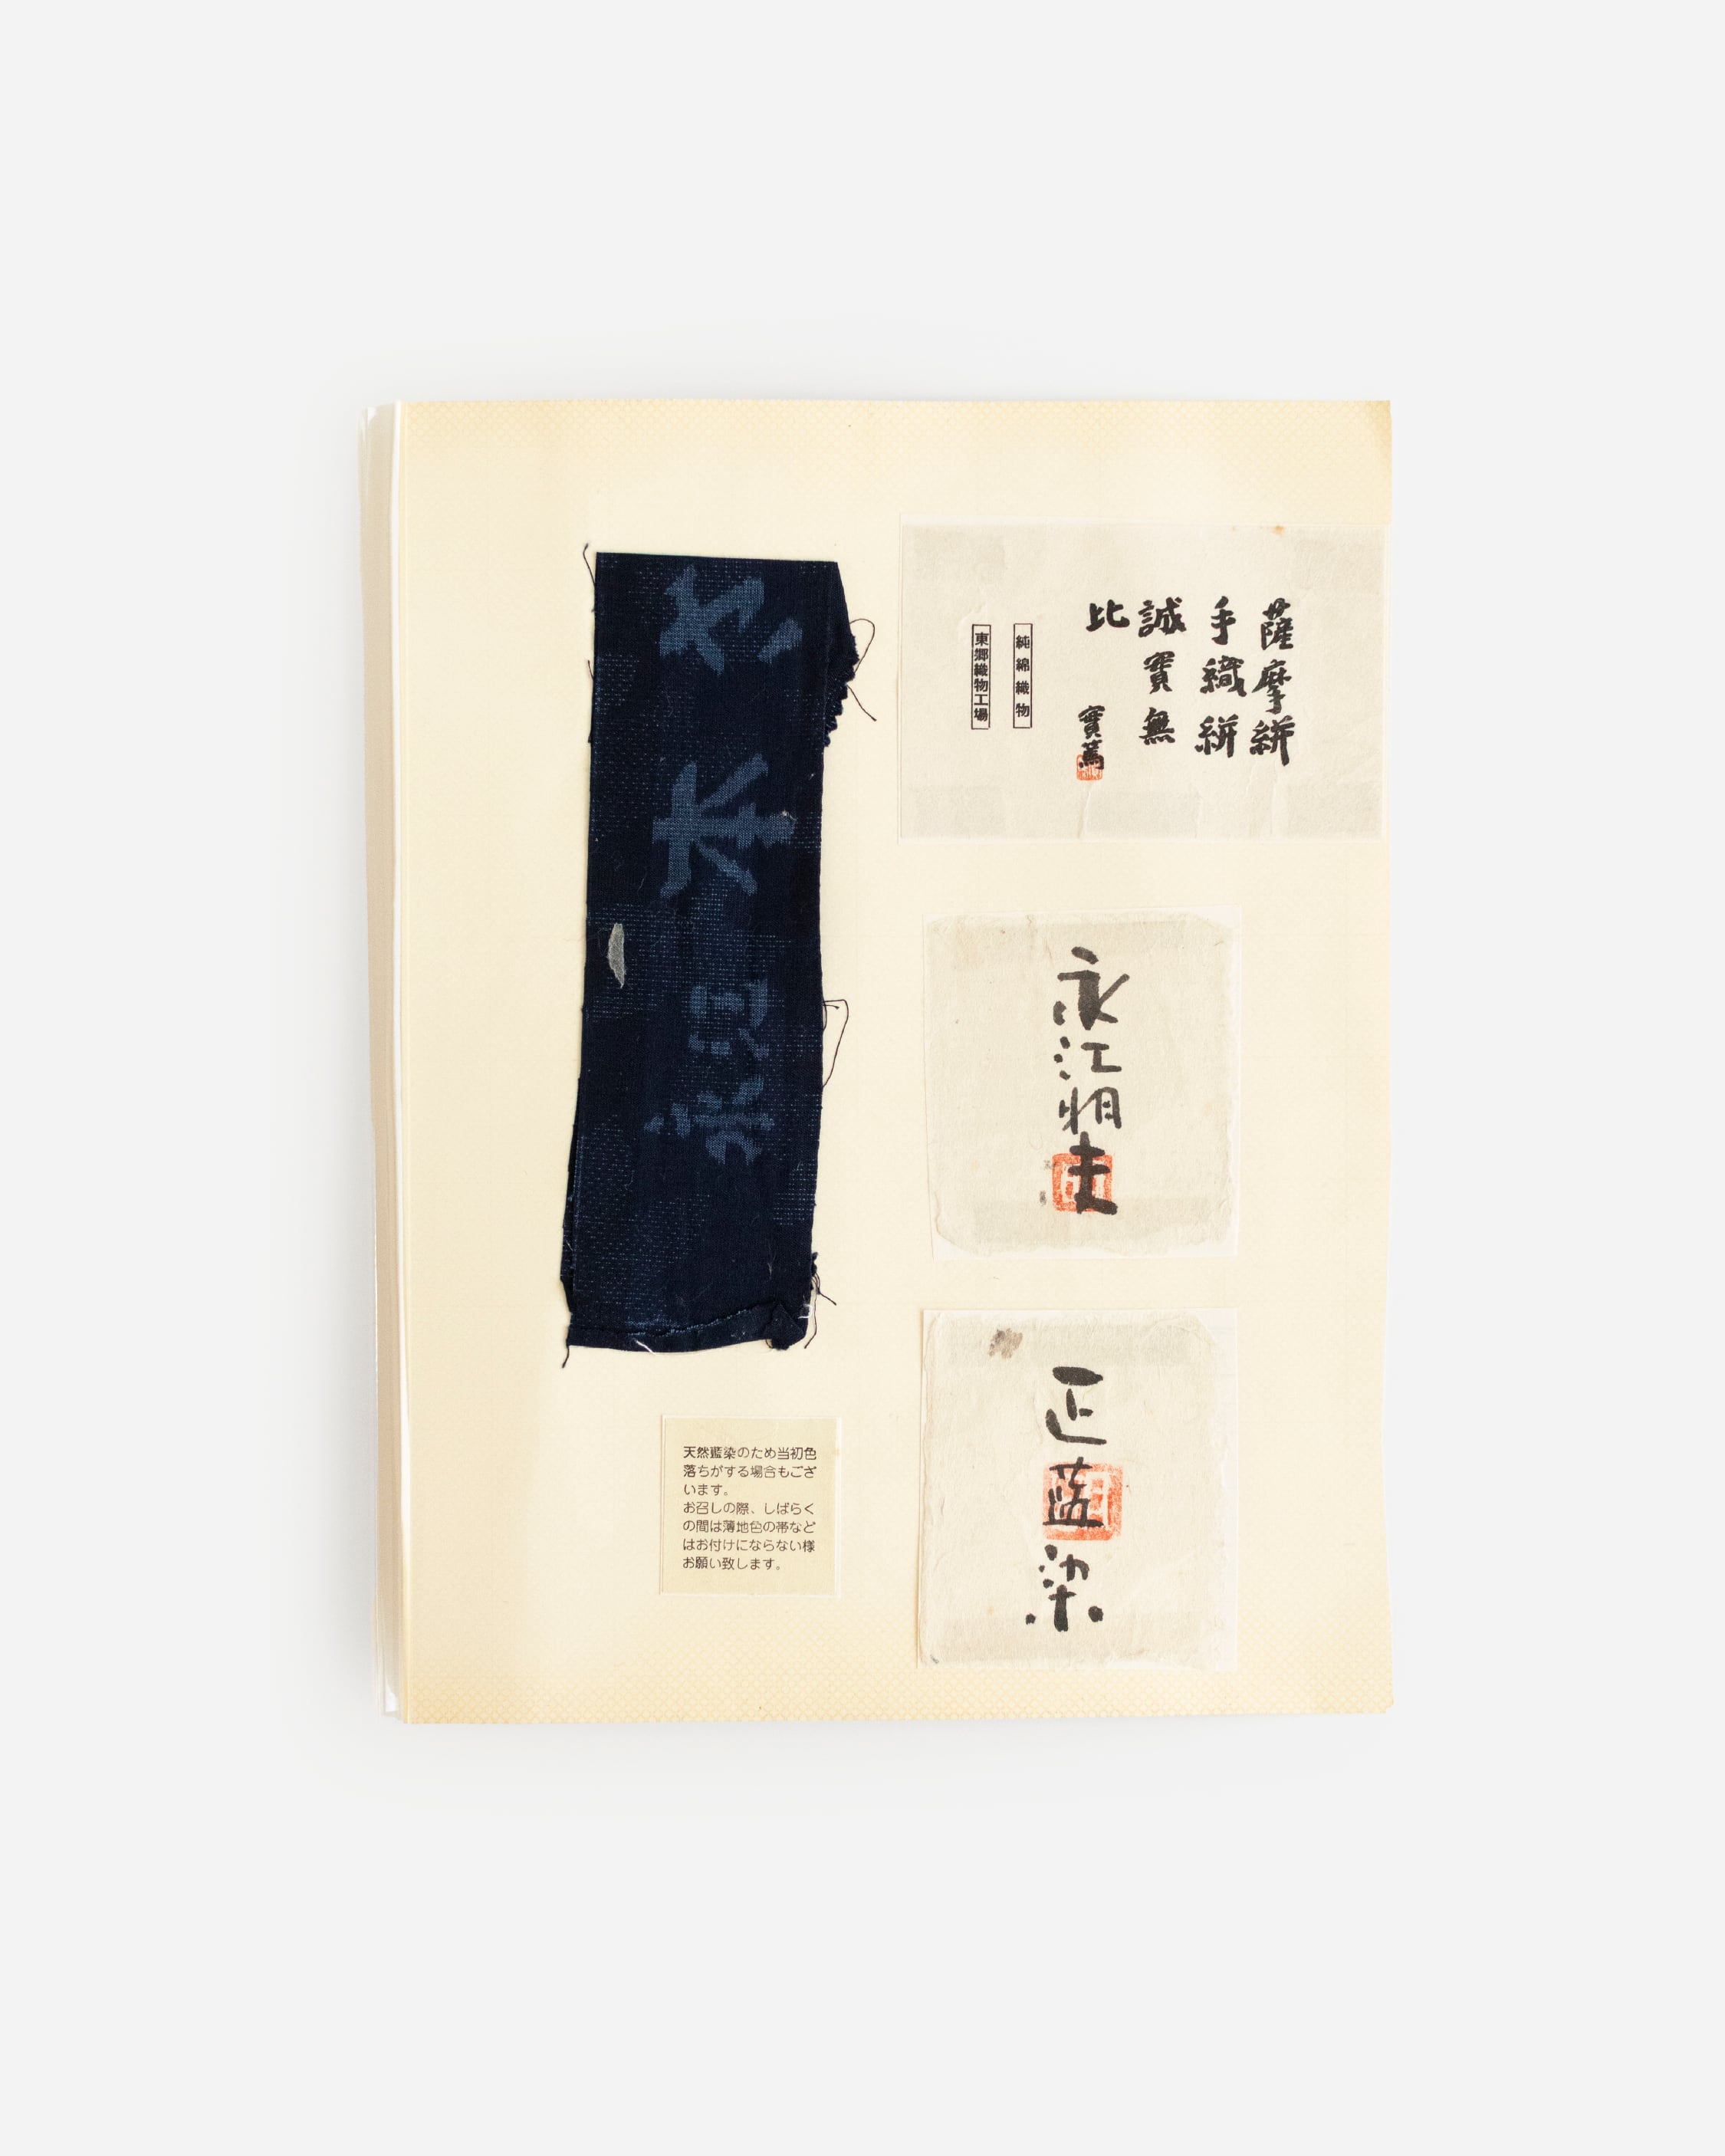 薩摩絣
手織絣
誠實無
比
實篤
純綿織物
東郷織物工場
永江明夫
正藍染
天然藍染のため当初色
落ちがする場合もござ
います。
お召しの際、しばらく
の間は薄地色の帯など
はお付けにならない様
お願い致します。